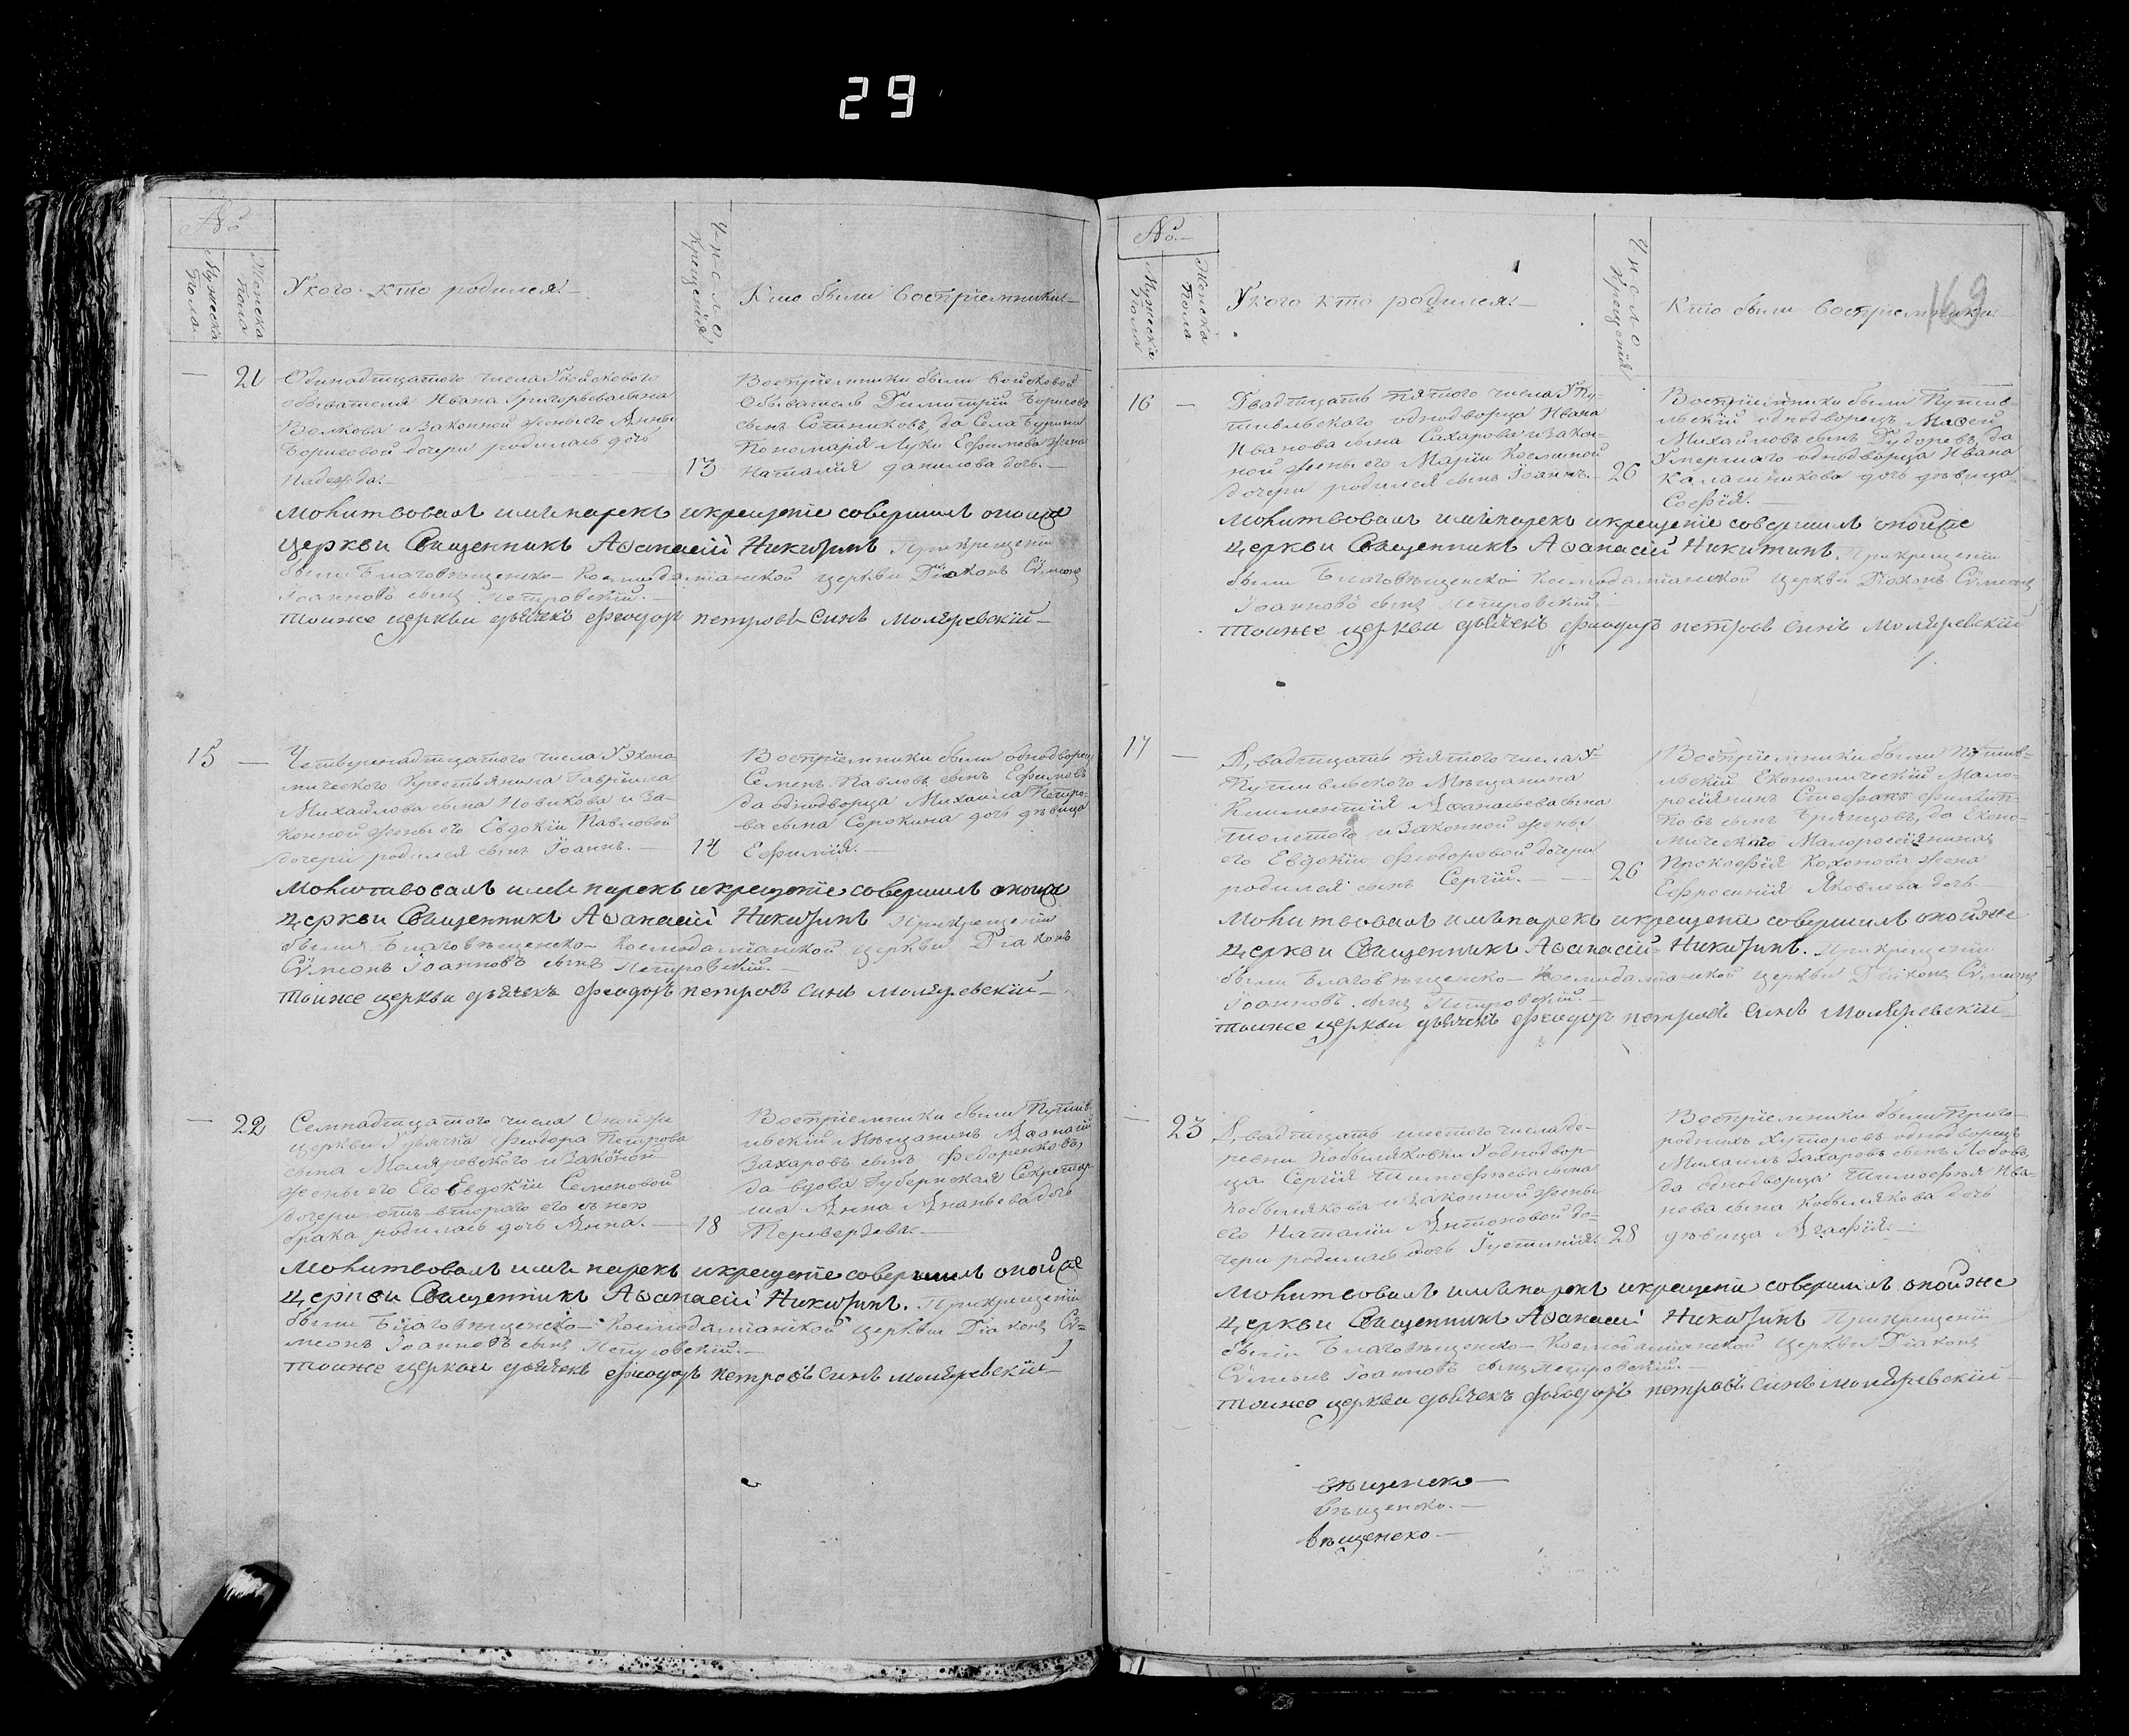 29
№
Мужеска пола
Женска пола
У кого кто родился.
Число крещенія
Кто были восприемники
21
Одинадцатого числа У войскового
обывателя Ивана Григорьева сына
Волкова и законной жены его Анны
Борисовой дочери родилась дочь
Надежда.
13
Восприемники были войсковой
обыватель Димитрій Борисовъ
сынъ Сотниковъ, да Села Бурыни
Пономаря Луки Ефимова жена
Наталія данилова дочь.
Молитвовалъ имя нарекъ и крещеніе совершилъ оной же
церкви Священникъ Аѳанасій Никитинъ При крещеніи
были Благовѣщенско-Космодаміанской церкви Діаконъ Сѵмеонъ
Іоанновъ сынъ Петровскій.
тоиже церкви дьячекъ феодоръ петровъ синъ моляревскій
15
Четвернадцатого числа У эконо-
мического Крестьянина Гавріила
Михайлова сына Новикова и за-
конной жены его Евдокіи Павловой
дочери родился сынъ Іоаннъ.
14
Восприемники были однодворец
Семенъ Павловъ сынъ Ефимовъ
да однодворца Михаила Петро-
ва сына Сорокина дочь дѣвица
Ефимія.
Молитвовалъ имя нарекъ и крещеніе совершилъ оной же
церкви Священникъ Аѳанасій Никитинъ При крещеніи
были Благовѣщенско Космодаміанской церкви Діаконъ
Сѵмеонъ Іоанновъ сынъ Петровскій.
тоиже церкви дьячекъ феодоръ петровъ синъ моляревскій
22
Семнадцатого числа Оной же
церкви У дьячка Феодора Петрова
сына Моляревского и законой
жены его Его Евдокіи Семеновой
дочери отъ второго его съ нею
брака родилась дочь Анна.
18
Восприемники были Путив-
льскій Мѣщанинъ Аѳанасій
Захаровъ сынъ Федоренковъ,
да вдова Губернская Секретар-
ша Анна Ананьева дочь
Переверзева.
Молитвовалъ имя нарекъ и крещеніе совершилъ оной же
церкви Священникъ Аѳанасій Никитинъ. При крещеніи
были Благовѣщенско-Космодаміанской церкви Діаконъ Сѵ-
меонъ Іоанновъ сынъ Петровскій.
тоиже церкви дьячекъ феодоръ петровъ синъ моляревскій
№
Мужеска пола
Женска пола
У кого кто родился.
Число крещенія
Кто были восприемники
169
16
Двадцать пятого числа У Пу-
тивльского однодворца Ивана
Иванова сына Сахарова и закон-
ной жены его Маріи Косминой
дочери родился сынъ Іоаннъ.
26
Восприемники были Путив-
льскій однодворецъ
Михайловъ сынъ да
Умершаго однодворца Ивана
Калашникова дочь дѣвица
Софія.
Молитвовалъ имя нарекъ и крещеніе совершилъ оной же
церкви Священникъ Аѳанасій Никитинъ. При крещеніи
были Благовѣщенско Космодаміанской церкви Діаконъ Сѵмеонъ
Іоанновъ сынъ Петровскій.
тоиже церкви дьячекъ феодоръ петровъ синъ моляревскій
17
Двадцать пятого числа У
Путивльского Мѣщанина
Климентія Аѳанасьева сына
и законной жены
его Евдокіи Феодоровой дочери
родился сынъ Сергій.
26
Восприемники были Путив-
льскій Економическій Мало-
росіянинъ Стефанъ Филип-
повъ сынъ да Еконо-
мическаго Малоросіянина
Прокофія Коханова жена
Ефросинія Яковлева дочь.
Молитвовалъ имя нарекъ и крещеніе совершилъ оной же
церкви Священникъ Аѳанасій Никитинъ. При крещеніи
были Благовѣщенско-Космодаміанской церкви Діаконъ Сѵмеонъ
Іоанновъ сынъ Петровскій.
тоиже церкви дьячекъ феодоръ петровъ синъ моляревскій
23
Двадцать шестого числа де-
ревни Кобыляковки У однодвор-
ца Сергія Тимофѣева сына
Кобылякова и законной жены
его Наталіи Антоновой до-
чери родилась дочь Іустинія.
28
Восприемники были Приго-
родныхъ Хуторовъ однодворецъ
Михаилъ Захаровъ сынъ Лобовъ,
да однодворца Тимофѣя Ива-
нова сына Кобылякова дочь
дѣвица Агафія.
Молитвовалъ имя нарекъ и крещеніе совершилъ оной же
церкви Священникъ Аѳанасій Никитинъ При крещеніи
были Благовѣщенско-Космодаміанской церкви Діаконъ
Сѵмеонъ Іоанновъ сынъ Петровскій.
тоиже церкви дьячекъ феодоръ петровъ синъ моляревскій
вѣщенско
вѣщенско.
вѣщенско